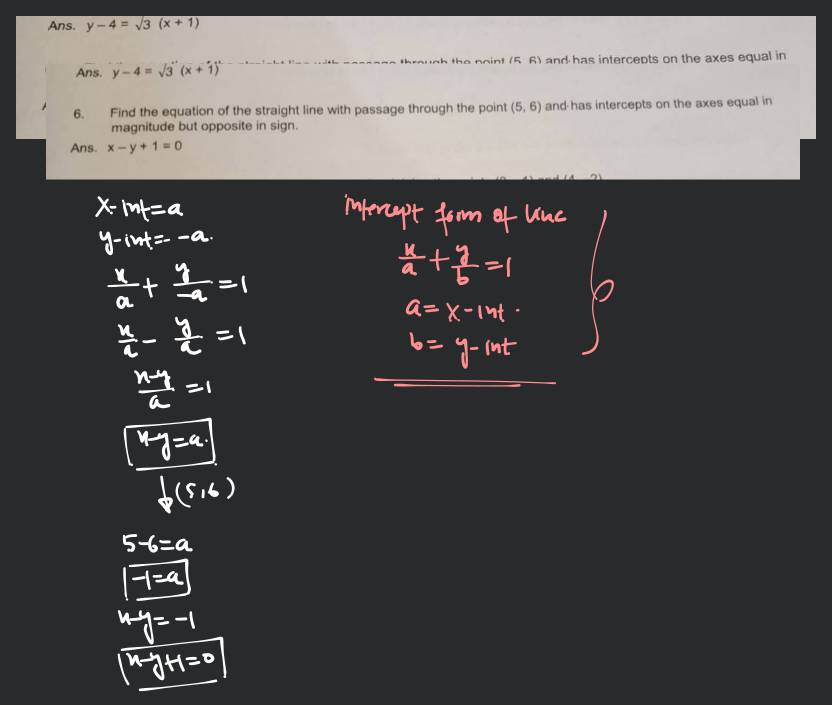 Ans. y – 4 = √3 (x + 1)
through the point (5, 6) and has intercepts on the axes equal in
Ans. y – 4 = √3 (x + 1)
6. Find the equation of the straight line with passage through the point (5, 6) and has intercepts on the axes equal in
magnitude but opposite in sign.
Ans. x – y + 1 = 0
x-int=a
y-int=-a.
x/a + y/-a =1
x/a - y/a =1
x-y/a =1
x-y=a.
↓(5,6)
5-6=a
-1=a
x-y=-1
x-y+1=0
Intercept form of line
x/a + y/b =1
a= x-int.
b= y-int